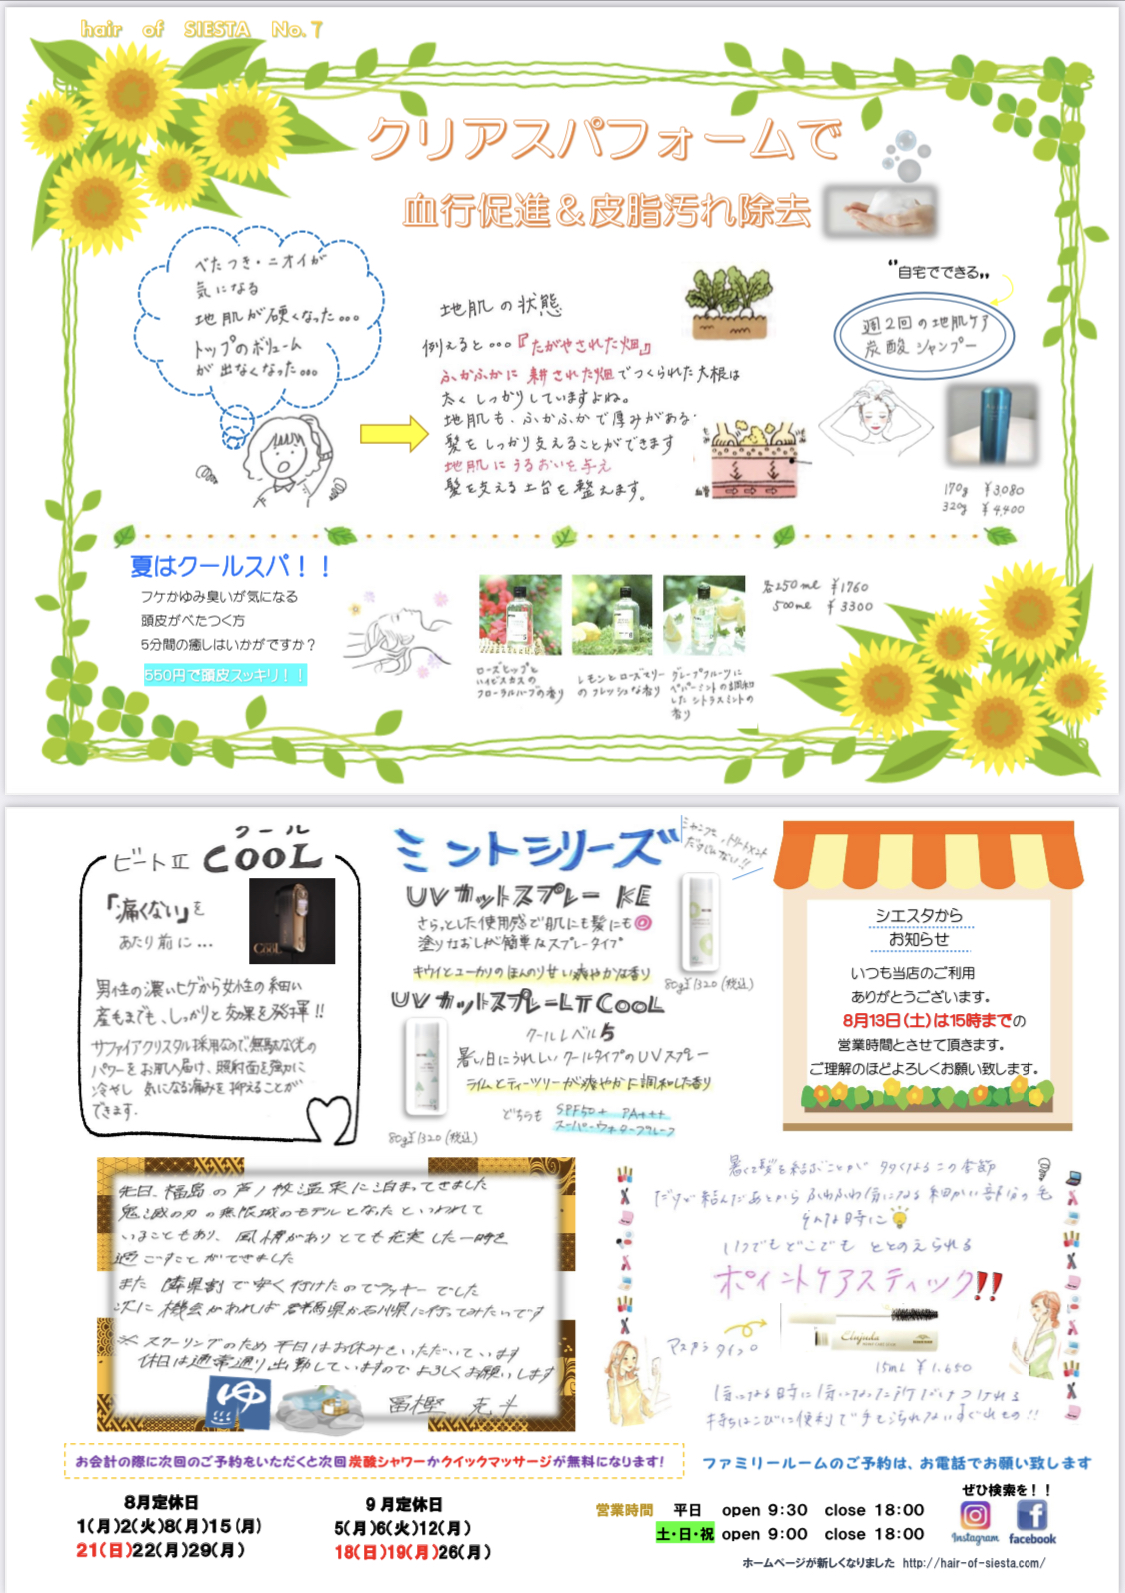 hair of SIESTA No.7
クリアスパフォームで
血行促進＆皮脂汚れ除去
べたつき・ニオイが
気になる
地肌が硬くなった...
トップのボリューム
が出なくなった...
地肌の状態
例えると...『たがやされた畑』
ふかふかに耕された畑でつくられた大根は
太くしっかりしていますよね。
地肌も、ふかふかで厚みがある
髪をしっかり支えることができます
地肌にうるおいを与え
髪を支える土台を整えます。
"自宅でできる„
週2回の地肌ケア
炭酸シャンプー
170g ¥3,080
320g ¥4,400
夏はクールスパ！！
フケかゆみ臭いが気になる
頭皮がべたつく方
5分間の癒しはいかがですか？
550円で頭皮スッキリ！！
各250ml ¥1760
500ml ¥3300
ローズヒップと
ハイビスカスの
フローラルハーブの香り
レモンとローズマリー
のフレッシュな香り
グレープフルーツに
ペパーミントの調和
したシトラスミントの
香り
クール
ビートⅡ COOL
「痛くない」を
あたり前に...
COOL
男性の濃いヒゲから女性の細い
産毛までも、しっかりと効果を発揮!!
サファイアクリスタル採用なので、無駄な光の
パワーをお肌へ届け、照射面を強力に
冷やし 気になる痛みを抑えることが
できます.
ミントシリーズ
シャンプー、トリートメント
だけじゃない!!
UVカットスプレー KE
さらっとした使用感で肌にも髪にも◎
塗りなおしが簡単なスプレータイプ
キウイとユーカリのほんのり甘い爽やかな香り
80g¥1320(税込)
UVカットスプレーLT COOL
クールレベル5
暑い日にうれしいクールタイプのUVスプレー
ライムとティーツリーが爽やかに調和した香り
どちらも SPF50+ PA+++
スーパーウォータープルーフ
80g¥1320(税込)
シエスタから
お知らせ
いつも当店のご利用
ありがとうございます。
8月13日(土)は15時までの
営業時間とさせて頂きます。
ご理解のほどよろしくお願い致します。
先日、福島の芦ノ牧温泉に泊まってきました
鬼滅の刃の無限城のモデルとなったといわれて
いることもあり、風情がありとても充実した一時を
過ごすことができました
また 隣県割で安く行けたのでラッキーでした
次に機会があれば群馬県か石川県に行ってみたいです
※ スクーリングのため平日はお休みをいただいています
休日は通常通り出勤していますのでよろしくお願いします
ゆ
暑くて髪を結ぶことが多くなるこの季節
だけど結んだあとからふわふわ気になる細かい部分の毛
そんな時に
いつでもどこでも ととのえられる
ポイントケアスティック!!
マスカラタイプ。
15mL ¥1,650
気になる時に気になった所だけつけれる
持ちはこびに便利で手も汚れないすぐれもの!!
お会計の際に次回のご予約をいただくと次回炭酸シャワーかクイックマッサージが無料になります!
ファミリールームのご予約は、お電話でお願い致します
8月定休日
1(月)2(火)8(月)15(月)
21(日)22(月)29(月)
9月定休日
5(月)6(火)12(月)
18(日)19(月)26(月)
営業時間 平日 open 9:30 close 18:00
土・日・祝 open 9:00 close 18:00
ぜひ検索を！！
Instagram facebook
ホームページが新しくなりました http://hair-of-siesta.com/